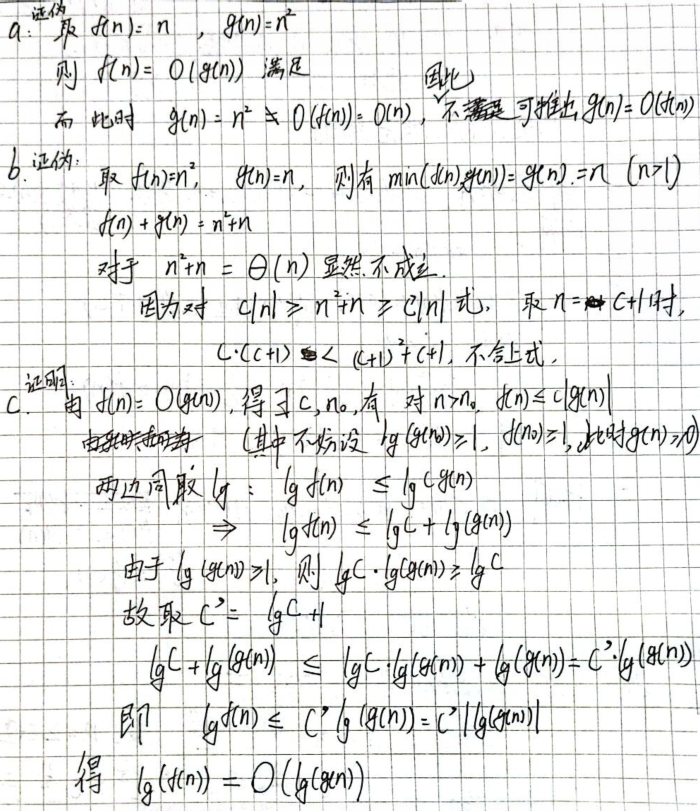 a. 证伪: 取 f(n)=n , g(n)=n²
则 f(n)=O(g(n)) 满足
而 此时 g(n)=n²≠O(f(n))=O(n), 因此不可推出 g(n)=O(f(n))
b. 证伪: 取 f(n)=n², g(n)=n, 则有 min(f(n),g(n))=g(n)=n (n>1)
f(n)+g(n)=n²+n
对于 n²+n=Θ(n) 显然不成立.
因为对 c|n|≥n²+n≥c|n| 式, 取 n=c+1时,
c·(c+1)<(c+1)²+c+1, 不合上式.
c. 证明: 由 f(n)=O(g(n)), 得∃c,n₀,有 对n>n₀ f(n)≤c|g(n)|
(其中不妨设 lg(g(n₀))≥1, f(n₀)≥1, 此时g(n)>0)
两边同取lg: lgf(n) ≤ lgcg(n)
⇒ lgf(n) ≤ lgc+lg(g(n))
由于 lg(g(n))≥1, 则 lgc·lg(g(n))≥lgc
故取 c'= lgc+1
lgc+lg(g(n)) ≤ lgc·lg(g(n))+lg(g(n))=c'·lg(g(n))
即 lgf(n)≤ c'lg(g(n))=c'|lg(g(n))|
得 lg(f(n))=O(lg(g(n))